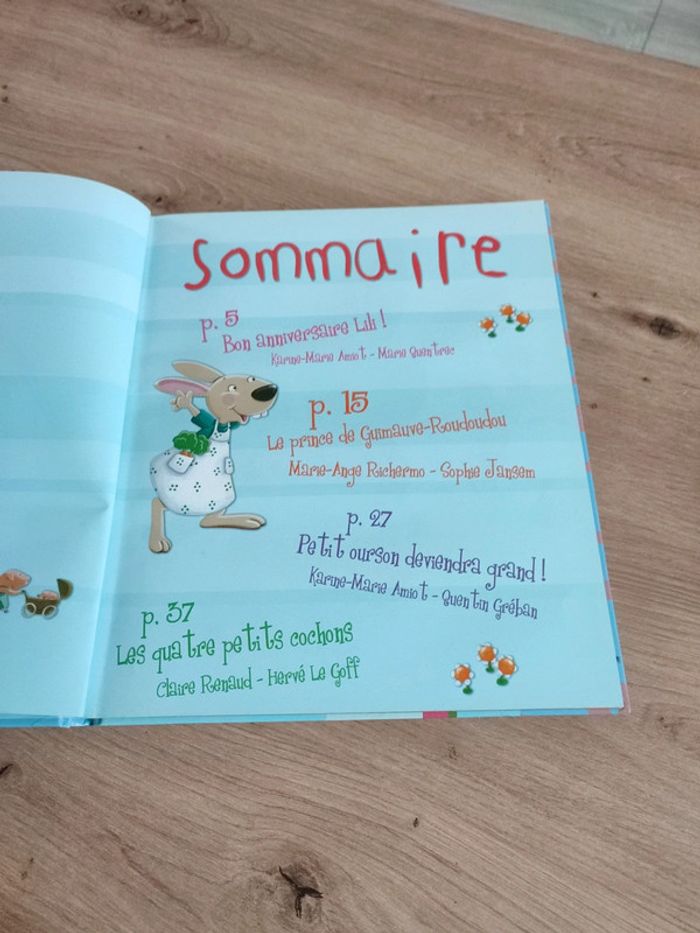 sommaire
p. 5
Bon anniversaire Lili !
Karine-Marie Amiot - Marie Quentrec
p. 15
Le prince de Guimauve-Roudoudou
Marie-Ange Richermo - Sophie Jansem
p. 27
Petit ourson deviendra grand !
Karine-Marie Amiot - Quentin Gréban
p. 37
Les quatre petits cochons
Claire Renaud - Hervé Le Goff